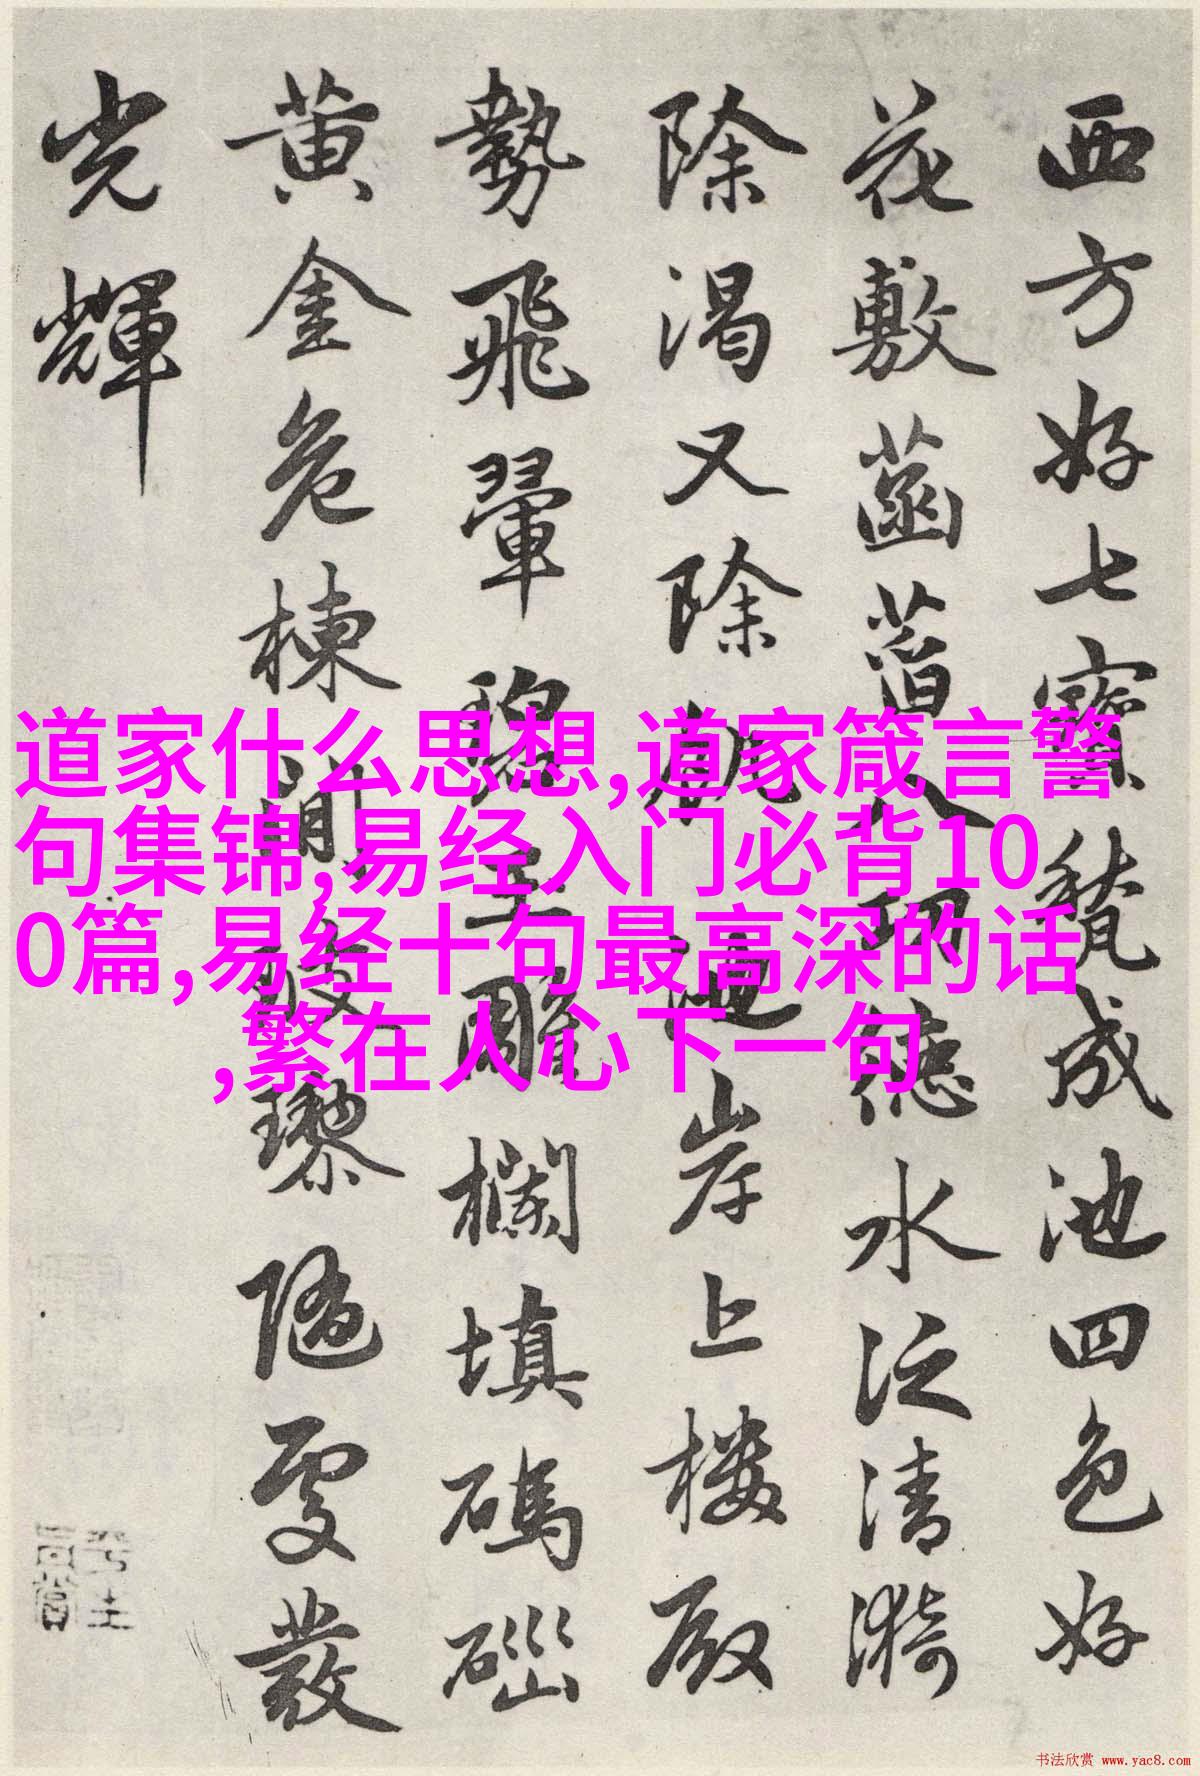 西方好七寶甃成池四色好
花敷菡萏八功德水泛清漪
除渴又除飢池岸上樓殿
勢飛翬碧玉雕欄填碼碯
黃金危棟間玻瓈隨處發
光輝
道家什么思想,道家箴言警
句集锦,易经入门必背10
0篇,易经十句最高深的话
,繁在人心下一句
书法欣赏 www.yac8.com